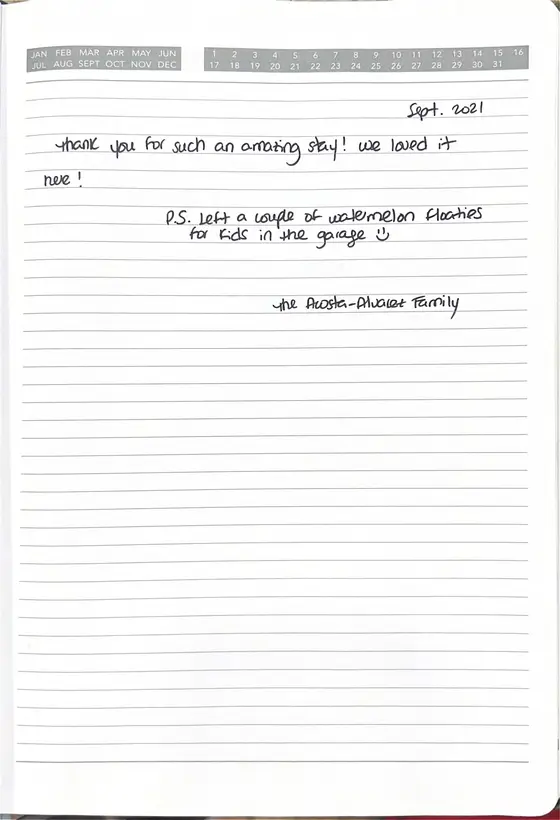 JAN FEB MAR APR MAY JUN
JUL AUG SEPT OCT NOV DEC
1 2 3 4 5 6 7 8 9 10 11 12 13 14 15 16
17 18 19 20 21 22 23 24 25 26 27 28 29 30 31
Sept. 2021
thank you for such an amazing stay! we loved it
here!
P.S. Left a couple of watermelon floaties
for kids in the garage :)
the Acosta-Alvarez Family